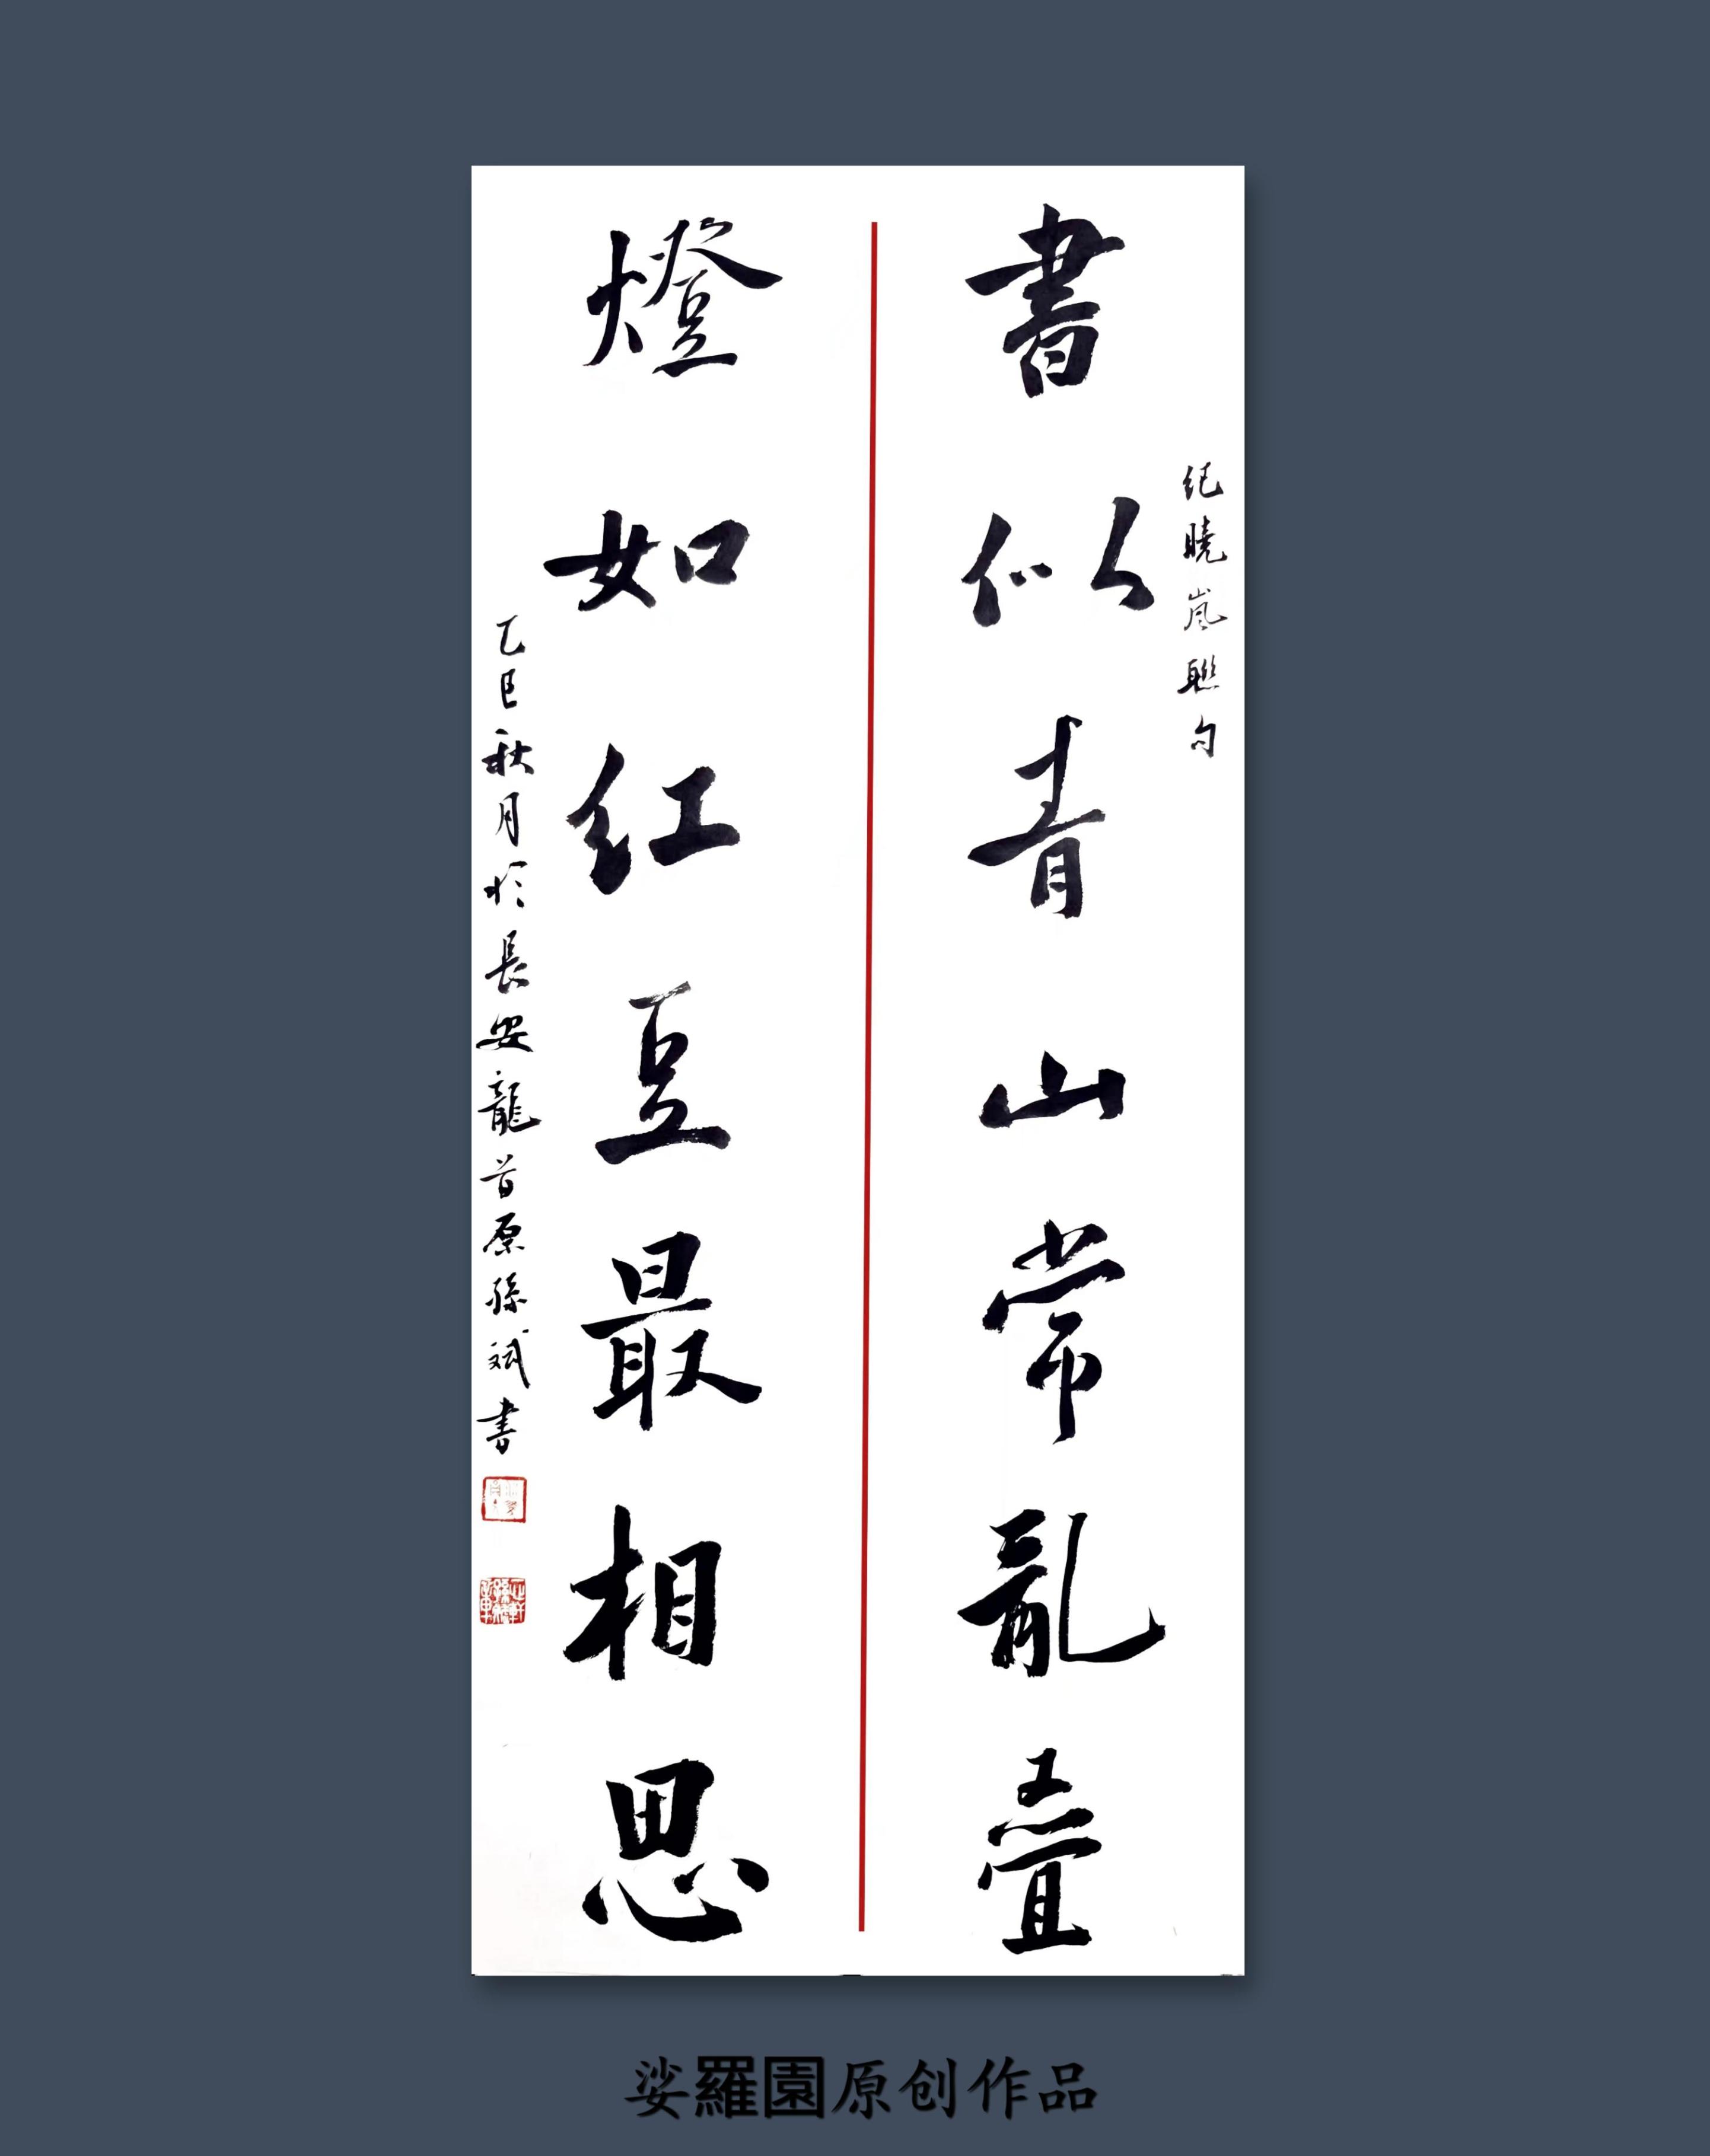 紀曉嵐聯句
書似青山常亂疊
燈如红豆最相思
乙巳秋月於長安龍首原孫斌書
娑羅園原创作品